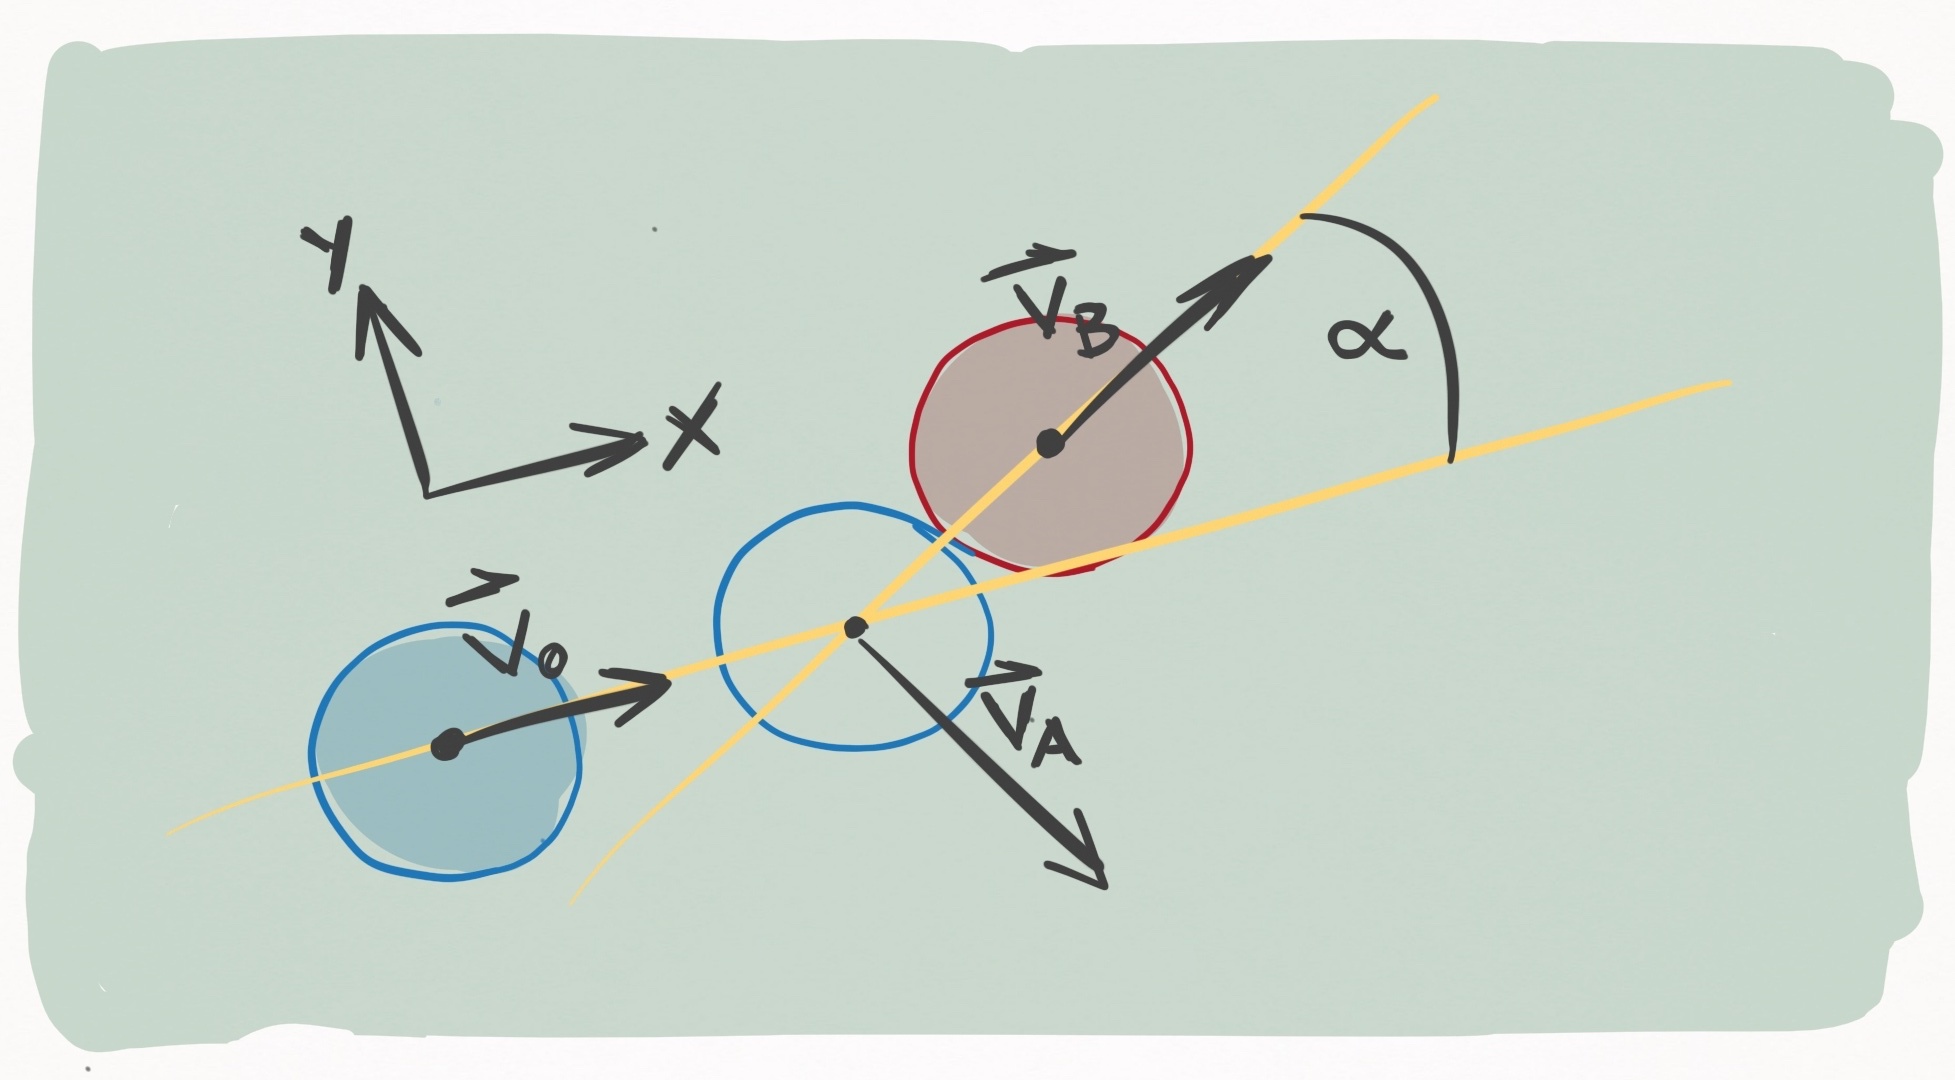 Y
X
V⃗B
α
V⃗0
V⃗A